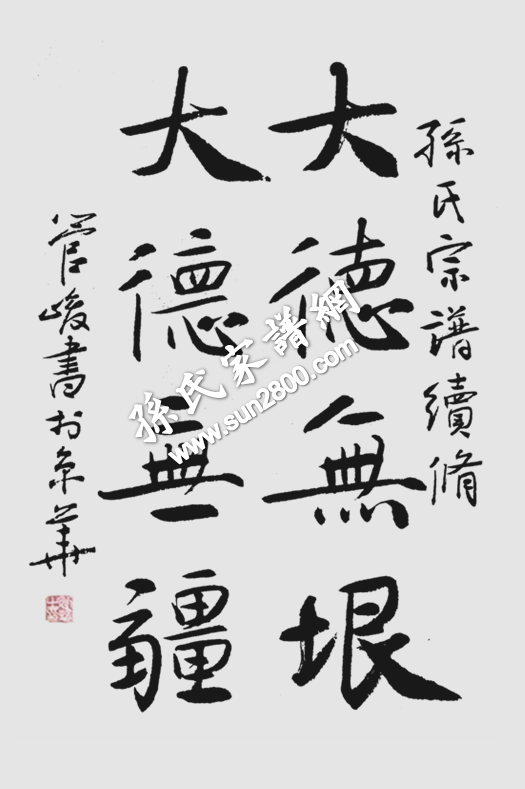 孫氏宗譜續脩
大德無垠
大德無疆
管峻書於京華
孫氏家譜網
www.sun2800.com